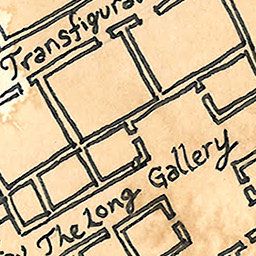 Transfigura
The Long Gallery